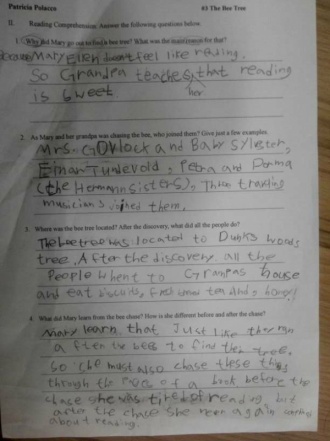 Patricia Polacco #3 The Bee Tree
II. Reading Comprehension: Answer the following questions below.
1. Why did Mary go out to find a bee tree? What was the main reason for that?
Because Mary Ellen doesn't feel like reading.
So Grandpa teaches her, that reading
is sweet
2. As Mary and her grandpa was chasing the bee, who joined them? Give just a few examples.
Mrs. Govlock and Baby Sylvester,
Einar Tundevold, Petra and Dorma
(the Hermann sisters), Three traveling
musicians joined them.
3. Where was the bee tree located? After the discovery, what did all the people do?
The bee tree was located to woods
tree. After the discovery all the
People whent to Granpas house
and eat biscuits, tea and honey!
4. What did Mary learn from the bee chase? How is the different before and after the chase?
Mary learn that Just like they ran
after the bees to find the tree,
so she must also chase these things
through the of a book before the
chase she was tired of reading, but
after the chase she again
about reading.